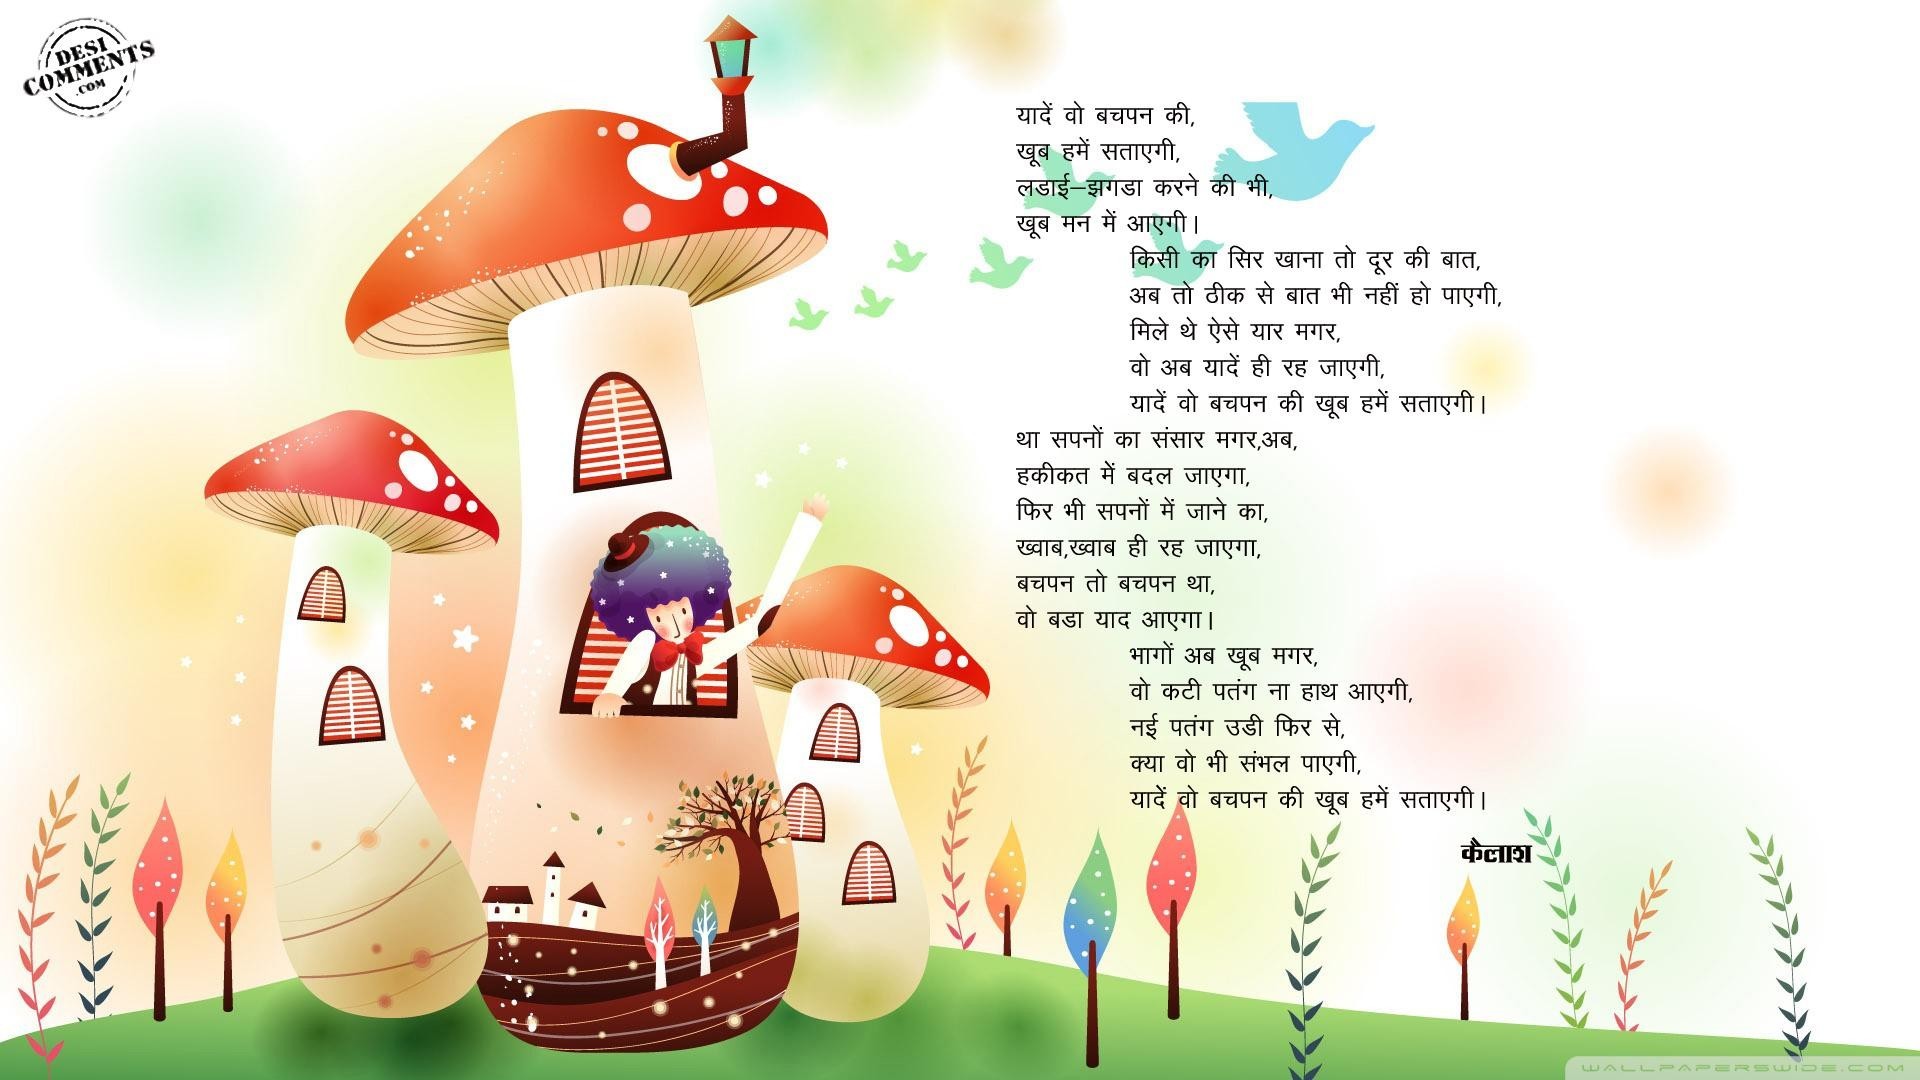 DESI
COMMENTS
.COM
यादें वो बचपन की,
खूब हमें सताएगी,
लडाई–झगडा करने की भी,
खूब मन में आएगी।
किसी का सिर खाना तो दूर की बात,
अब तो ठीक से बात भी नहीं हो पाएगी,
मिले थे ऐसे यार मगर,
वो अब यादें ही रह जाएगी,
यादें वो बचपन की खूब हमें सताएगी।
था सपनों का संसार मगर,अब,
हकीकत में बदल जाएगा,
फिर भी सपनों में जाने का,
ख्वाब,ख्वाब ही रह जाएगा,
बचपन तो बचपन था,
वो बडा याद आएगा।
भागों अब खूब मगर,
वो कटी पतंग ना हाथ आएगी,
नई पतंग उडी फिर से,
क्या वो भी संभल पाएगी,
यादें वो बचपन की खूब हमें सताएगी।
कैलाश
WALLPAPERSWIDE.COM